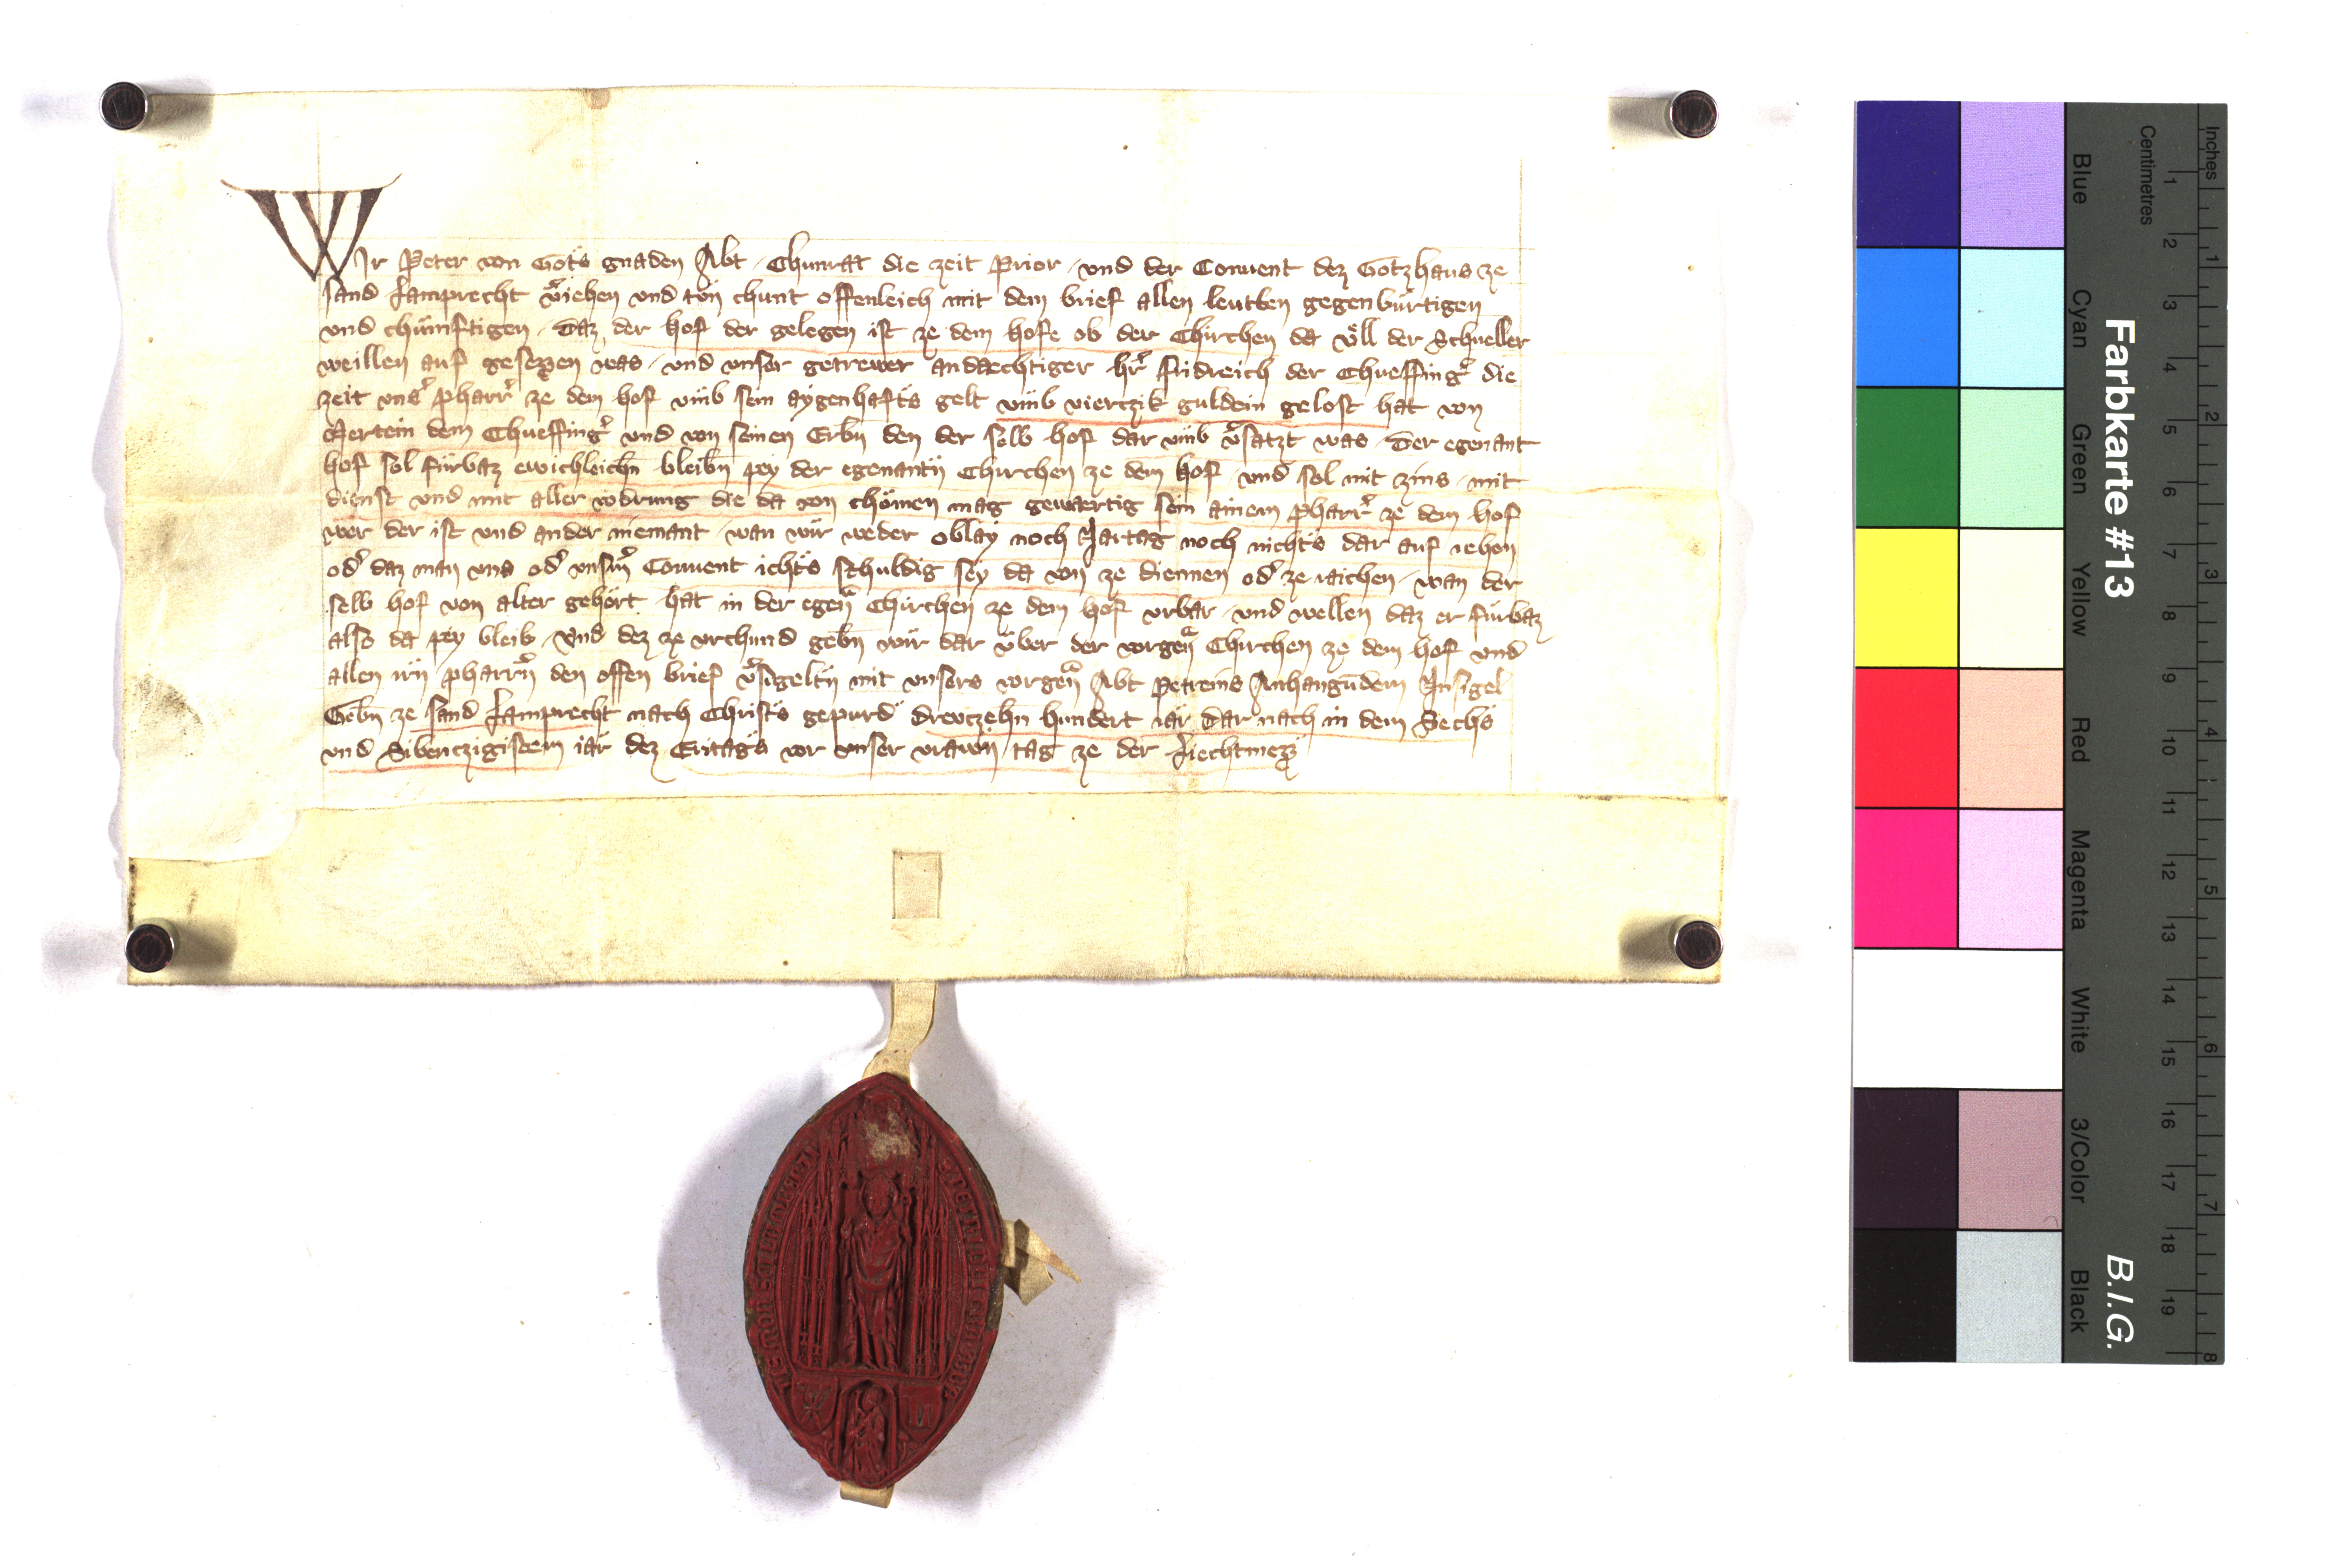 WIr Peter von Gots gnaden Abt Chunrat die zeit Prior und der Conuent dez Gotzhaus ze
sand Lamprecht v̄iehen und tün chunt offenleich mit dem brief allen leutten gegenbürtigen
und chümftigen Daz der hof der gelegen ist ze dem hofe ob der Chirchen da völl der Schneller
weillen auf gesezzen was und unser getrewer andaechtiger hr̄ fridreich der Chueffinḡ die
zeit uns̄ pharr̄ ze dem hof umb sein aygenhafts gelt umb vierczik guldein gelost hat von
Mertein dem Chueffinḡ und von seinen Erbn̄ den der selb hof dar umb v̄satzt was Der egenant
hof sol fürbaz ewichleichn̄ bleibn̄ pey der egenantn̄ Chirchen ze dem hof und sol mit zins mit
dienst und mit aller vodrung die da von chömen mag gewaertig sein ainem pharr̄ ze dem hof
wer der ist und ander niemant wan wir weder oblay noch Jartag noch nichts dar auf iehen
od̄ daz man uns od̄ unsm̄ Conuent ichts schuldig sey da von ze diennen od̄ ze raichen wan der
selb hof von alter gehört hat in der egen̄ Chirchen ze dem hof urbar und wellen daz er fürbaz
also da pey bleib Und dez ze urchund gebn̄ wir dar über der vorgen̄ Chirchen ze dem hof und
allen irn̄ pharrn̄ den offen brief v̄sigeltn̄ mit unsers vorgen̄ Abt Petreins Anhangūdem Insigel
Gebn̄ ze sand Lamprecht nach Christs gepurd dreuczehn hundert iar dar nach in dem Sechs
und Sibenczigistem iar dez Eritags vor unser vrawn̄ tag ze der Liechtmezz
Farbkarte #13
B.I.G.
Blue
Cyan
Green
Yellow
Red
Magenta
White
3/Color
Black
Centimetres
1 2 3 4 5 6 7 8 9 10 11 12 13 14 15 16 17 18 19
Inches
1 2 3 4 5 6 7 8